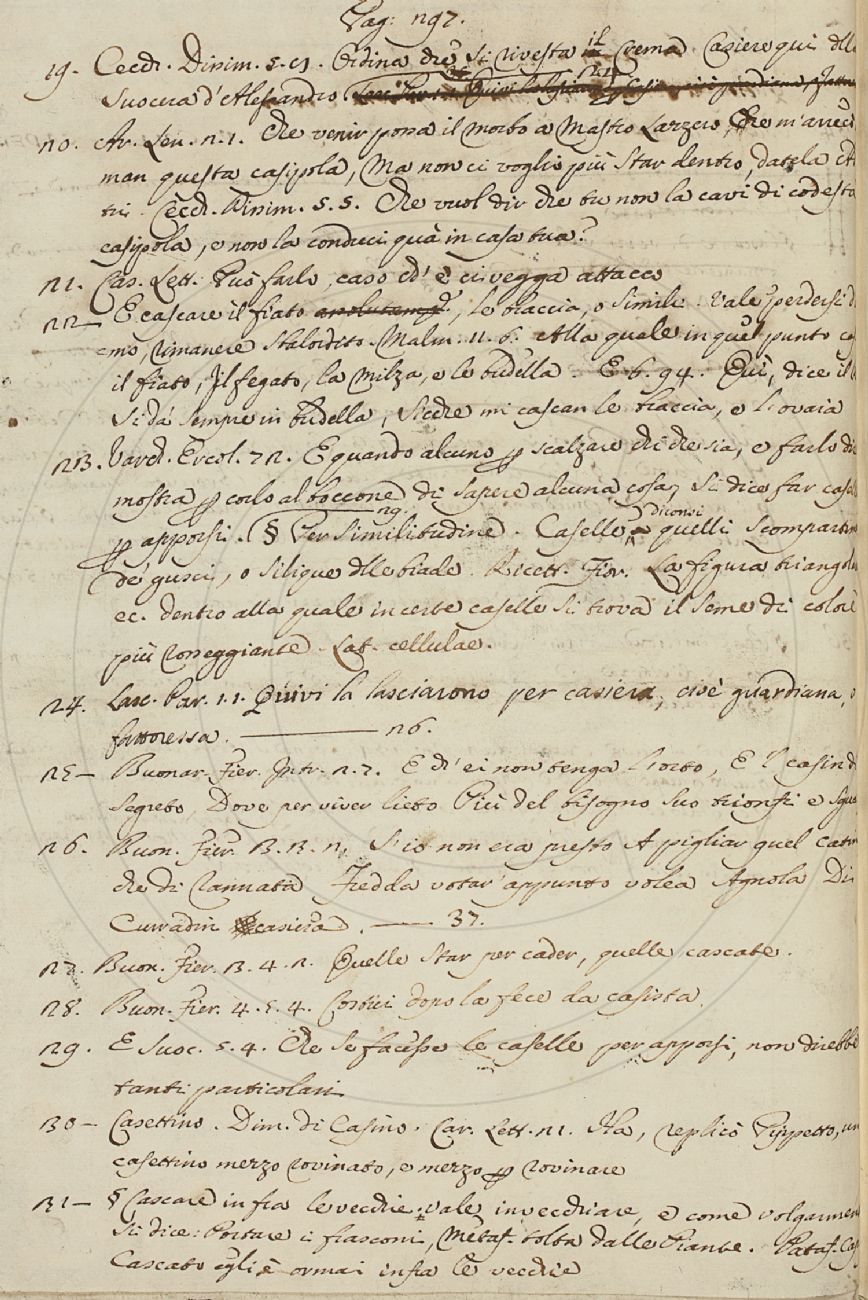 Pag: 297.
19. Cecch. Dissim. 5. Ordina che si rivesta il Crema Casiere qui dlla
Suocera d'Alessandro.
20. Ar. Len. 2. 1. Che venir possa il morbo a Mastro Lazzero, Che m'arrecò
man questa casipola, Ma non ci voglio più star dentro, datela
Cecch. Dissim. 5. 5. Che vuol dir che tu non la cavi di codesta
casipola, e non la conduci quà in casa tua?
21. Cas. Lett. Può farlo, caso ch' e ci vegga attacco
22 — E cascare il fiato, le braccia, o simili. Vale perdersi d
rimanere sbalordito. Malm. 11. 6. Alla quale in quel punto
il fiato, Il fegato, la milza, e le budella. E 6. 94. Quì, dice il
Si dà sempre in budella, Sicchè mi cascan le braccia, e l'ovaia
23. Varch. Ercol. 72. E quando alcuno p scalzare chi che sia, e farlo di
mostra p corlo al boccone di sapere alcuna cosa, si dice far casel
p apporsi. § Per similitudine. Caselle diconsi quelli scompartim
de' gusci, o silique dlle biade. Ricett. Fior. La figura triangola
ec. dentro alla quale in certe caselle si trova il seme di colore
più rosseggiante. Lat. cellulae.
24. Lasc. Par. 1. 1. Quivi la lasciarono per casiera, cioè guardiana, o
fattoressa. ——— 26.
25 — Buonar. Fier. Intr. 2. 7. E ch' ei non tenga l'orto, E 'l casin d
segreto, Dove per viver lieto Più del bisogno suo trionfi e sgua
26. Buon. Fier. 3. 2. S'io non era presto A pigliar quel catin
che di rannata Fredda votar appunto volea Agnola Di
Curradin casiera. —— 37.
27. Buon. Fier. 3. 4. 2. Quelle star per cader, quelle cascate.
28. Buon. Fier. 4. 5. 4. Costui dopo la fece da casista.
29. E Suoc. 5. 4. Che se facesse le caselle per apporsi, non direbbe
tanti particolari
30 — Casettino. Dim. di Casino. Car. Lett. 21. Ha, replicò Pippetto, un
casettino mezzo rovinato, e mezzo p rovinare
31 — § Cascare in fra le vecchie: vale invecchiare, e come volgarmen
si dice: Portare i fiasconi, Metaf. tolta dalle Piante. Pataf. Cas
Cascato egli è ormai infra le vecchie